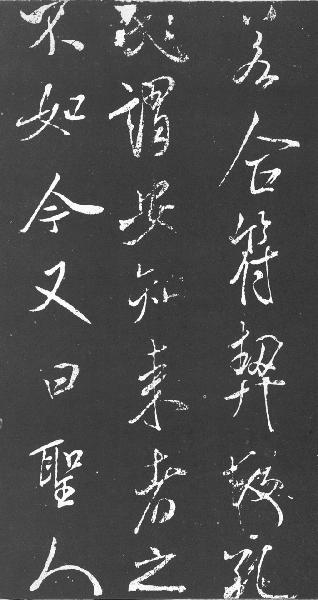 若合符契孔
氏謂安知來者之
不如今又曰聖人